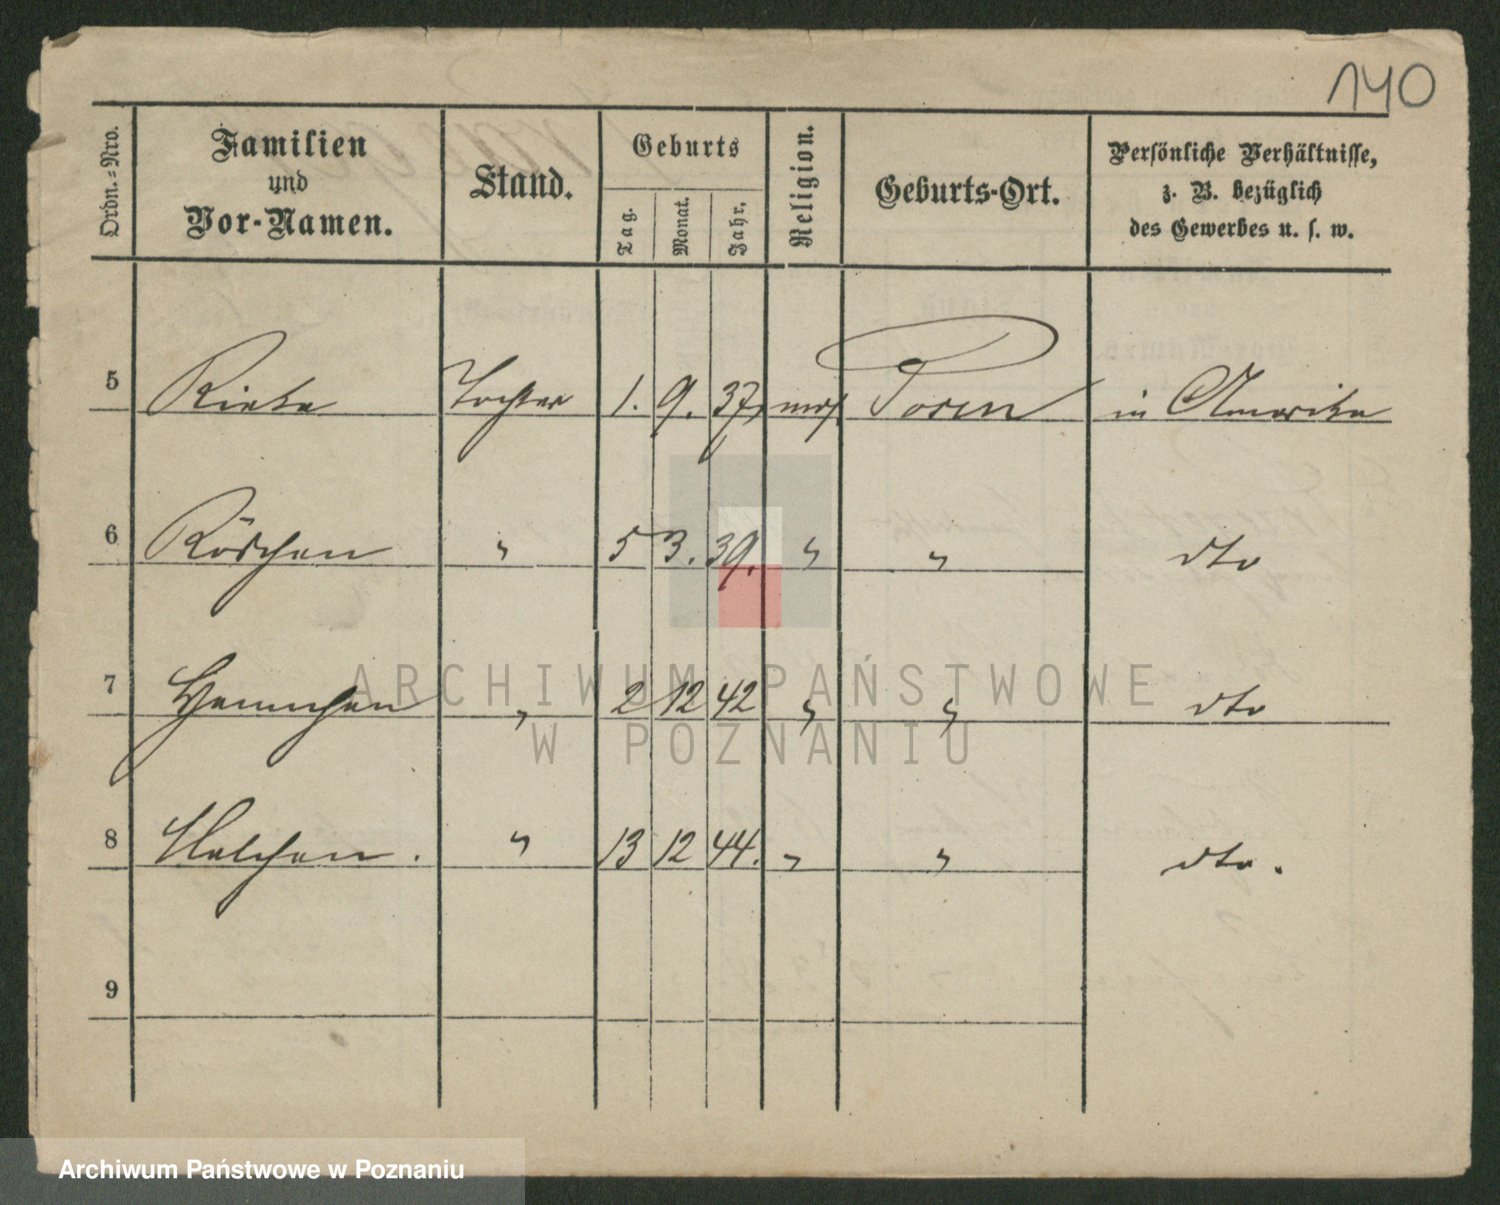 140
Ordn.=Nro. Familien und Vor-Namen. Stand. Geburts Tag. Monat. Jahr. Religion. Geburts-Ort. Persönliche Verhältnisse, z. B. bezüglich des Gewerbes u. s. w.
5 Rieke Tochter 1. 9. 37, mos. Posen in Amerika
6 Röschen " 5 3. 39. " " dto
7 Hannchen " 2 12 42 " " dto
8 Malchen. " 13 12 44. " " dto.
9
ARCHIWUM PAŃSTWOWE
W POZNANIU
Archiwum Państwowe w Poznaniu